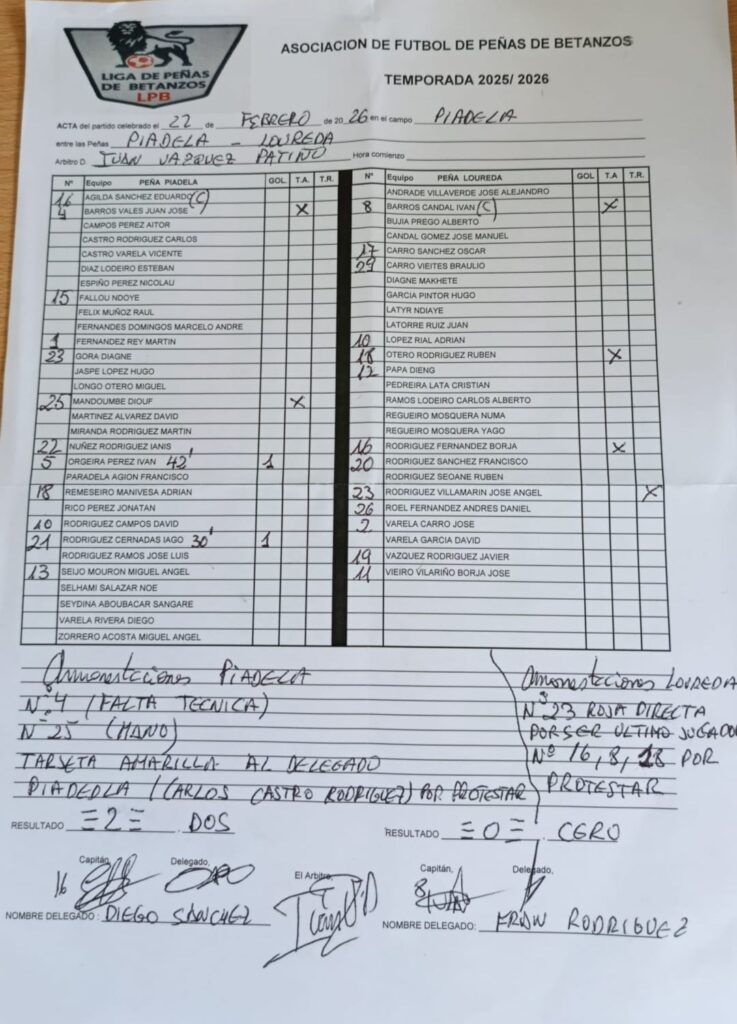 LIGA DE PEÑAS
DE BETANZOS
LPB
ASOCIACION DE FUTBOL DE PEÑAS DE BETANZOS
TEMPORADA 2025/ 2026
ACTA del partido celebrado el 22 de FEBRERO de 2026 en el campo PIADELA
entre las Peñas PIADELA - LOUREDA
Arbitro D. IVAN VAZQUEZ PATIÑO Hora comienzo
Nº Equipo PEÑA PIADELA GOL T.A. T.R.
16 AGILDA SANCHEZ EDUARDO (C)
4 BARROS VALES JUAN JOSE X
CAMPOS PEREZ AITOR
CASTRO RODRIGUEZ CARLOS
CASTRO VARELA VICENTE
DIAZ LODEIRO ESTEBAN
ESPIÑO PEREZ NICOLAU
15 FALLOU NDOYE
FELIX MUÑOZ RAUL
FERNANDES DOMINGOS MARCELO ANDRE
1 FERNANDEZ REY MARTIN
23 GORA DIAGNE
JASPE LOPEZ HUGO
LONGO OTERO MIGUEL
25 MANDOUMBE DIOUF X
MARTINEZ ALVAREZ DAVID
MIRANDA RODRIGUEZ MARTIN
22 NUÑEZ RODRIGUEZ IANIS
5 ORGEIRA PEREZ IVAN 42' 1
PARADELA AGION FRANCISCO
18 REMESEIRO MANIVESA ADRIAN
RICO PEREZ JONATAN
10 RODRIGUEZ CAMPOS DAVID
21 RODRIGUEZ CERNADAS IAGO 30' 1
RODRIGUEZ RAMOS JOSE LUIS
13 SEIJO MOURON MIGUEL ANGEL
SELHAMI SALAZAR NOE
SEYDINA ABOUBACAR SANGARE
VARELA RIVERA DIEGO
ZORRERO ACOSTA MIGUEL ANGEL
Nº Equipo PEÑA LOUREDA GOL T.A T.R.
ANDRADE VILLAVERDE JOSE ALEJANDRO
8 BARROS CANDAL IVAN (C) X
BUJIA PREGO ALBERTO
CANDAL GOMEZ JOSE MANUEL
17 CARRO SANCHEZ OSCAR
29 CARRO VIEITES BRAULIO
DIAGNE MAKHETE
GARCIA PINTOR HUGO
LATYR NDIAYE
LATORRE RUIZ JUAN
10 LOPEZ RIAL ADRIAN
18 OTERO RODRIGUEZ RUBEN X
12 PAPA DIENG
PEDREIRA LATA CRISTIAN
RAMOS LODEIRO CARLOS ALBERTO
REGUEIRO MOSQUERA NUMA
REGUEIRO MOSQUERA YAGO
16 RODRIGUEZ FERNANDEZ BORJA X
20 RODRIGUEZ SANCHEZ FRANCISCO
RODRIGUEZ SEOANE RUBEN
23 RODRIGUEZ VILLAMARIN JOSE ANGEL X
26 ROEL FERNANDEZ ANDRES DANIEL
2 VARELA CARRO JOSE
VARELA GARCIA DAVID
19 VAZQUEZ RODRIGUEZ JAVIER
11 VIEIRO VILARIÑO BORJA JOSE
Amonestaciones PIADELA
Nº 4 (FALTA TECNICA)
Nº 25 (MANO)
TARJETA AMARILLA AL DELEGADO
PIADEDLA (CARLOS CASTRO RODRIGUEZ) POR PROTESTAR
Amonestaciones LOUREDA
Nº 23 ROJA DIRECTA
POR SER ULTIMO JUGADO
Nº 16, 8, 18 POR
PROTESTAR
RESULTADO =2= DOS
RESULTADO =0= CERO
Capitán, Delegado, El Arbitro, Capitán, Delegado,
16 8
NOMBRE DELEGADO: DIEGO SANCHEZ
NOMBRE DELEGADO: FRAN RODRIGUEZ